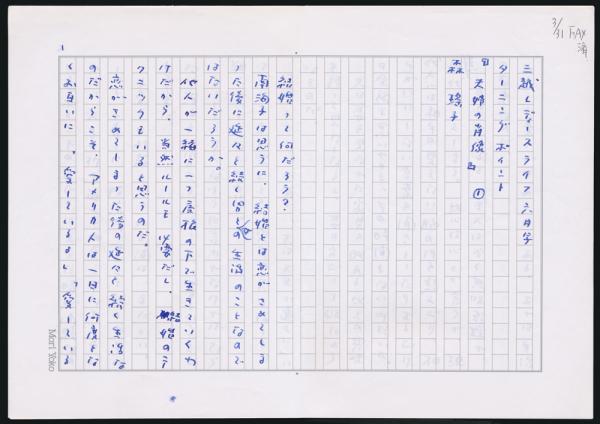 3/31 FAX済
1
三越レディースライフ 六月号
ターニングポイント
『夫婦の肖像』①
森 瑤子
結婚って何だろう?
南海子は思うに、結婚とは恋がさめてしま
った後に延々と続く男と女の生活のことなので
はないだろうか。
他人が一緒に一つ屋根の下で生きていくわ
けだから、当然ルールも必要だし、結婚のテ
クニックもいると思うのだ。
恋がさめてしまった後の延々と続く生活な
のだからこそ、アメリカ人は一日に何度とな
くお互いに、「愛しているよ」「愛している
Mori Yoko